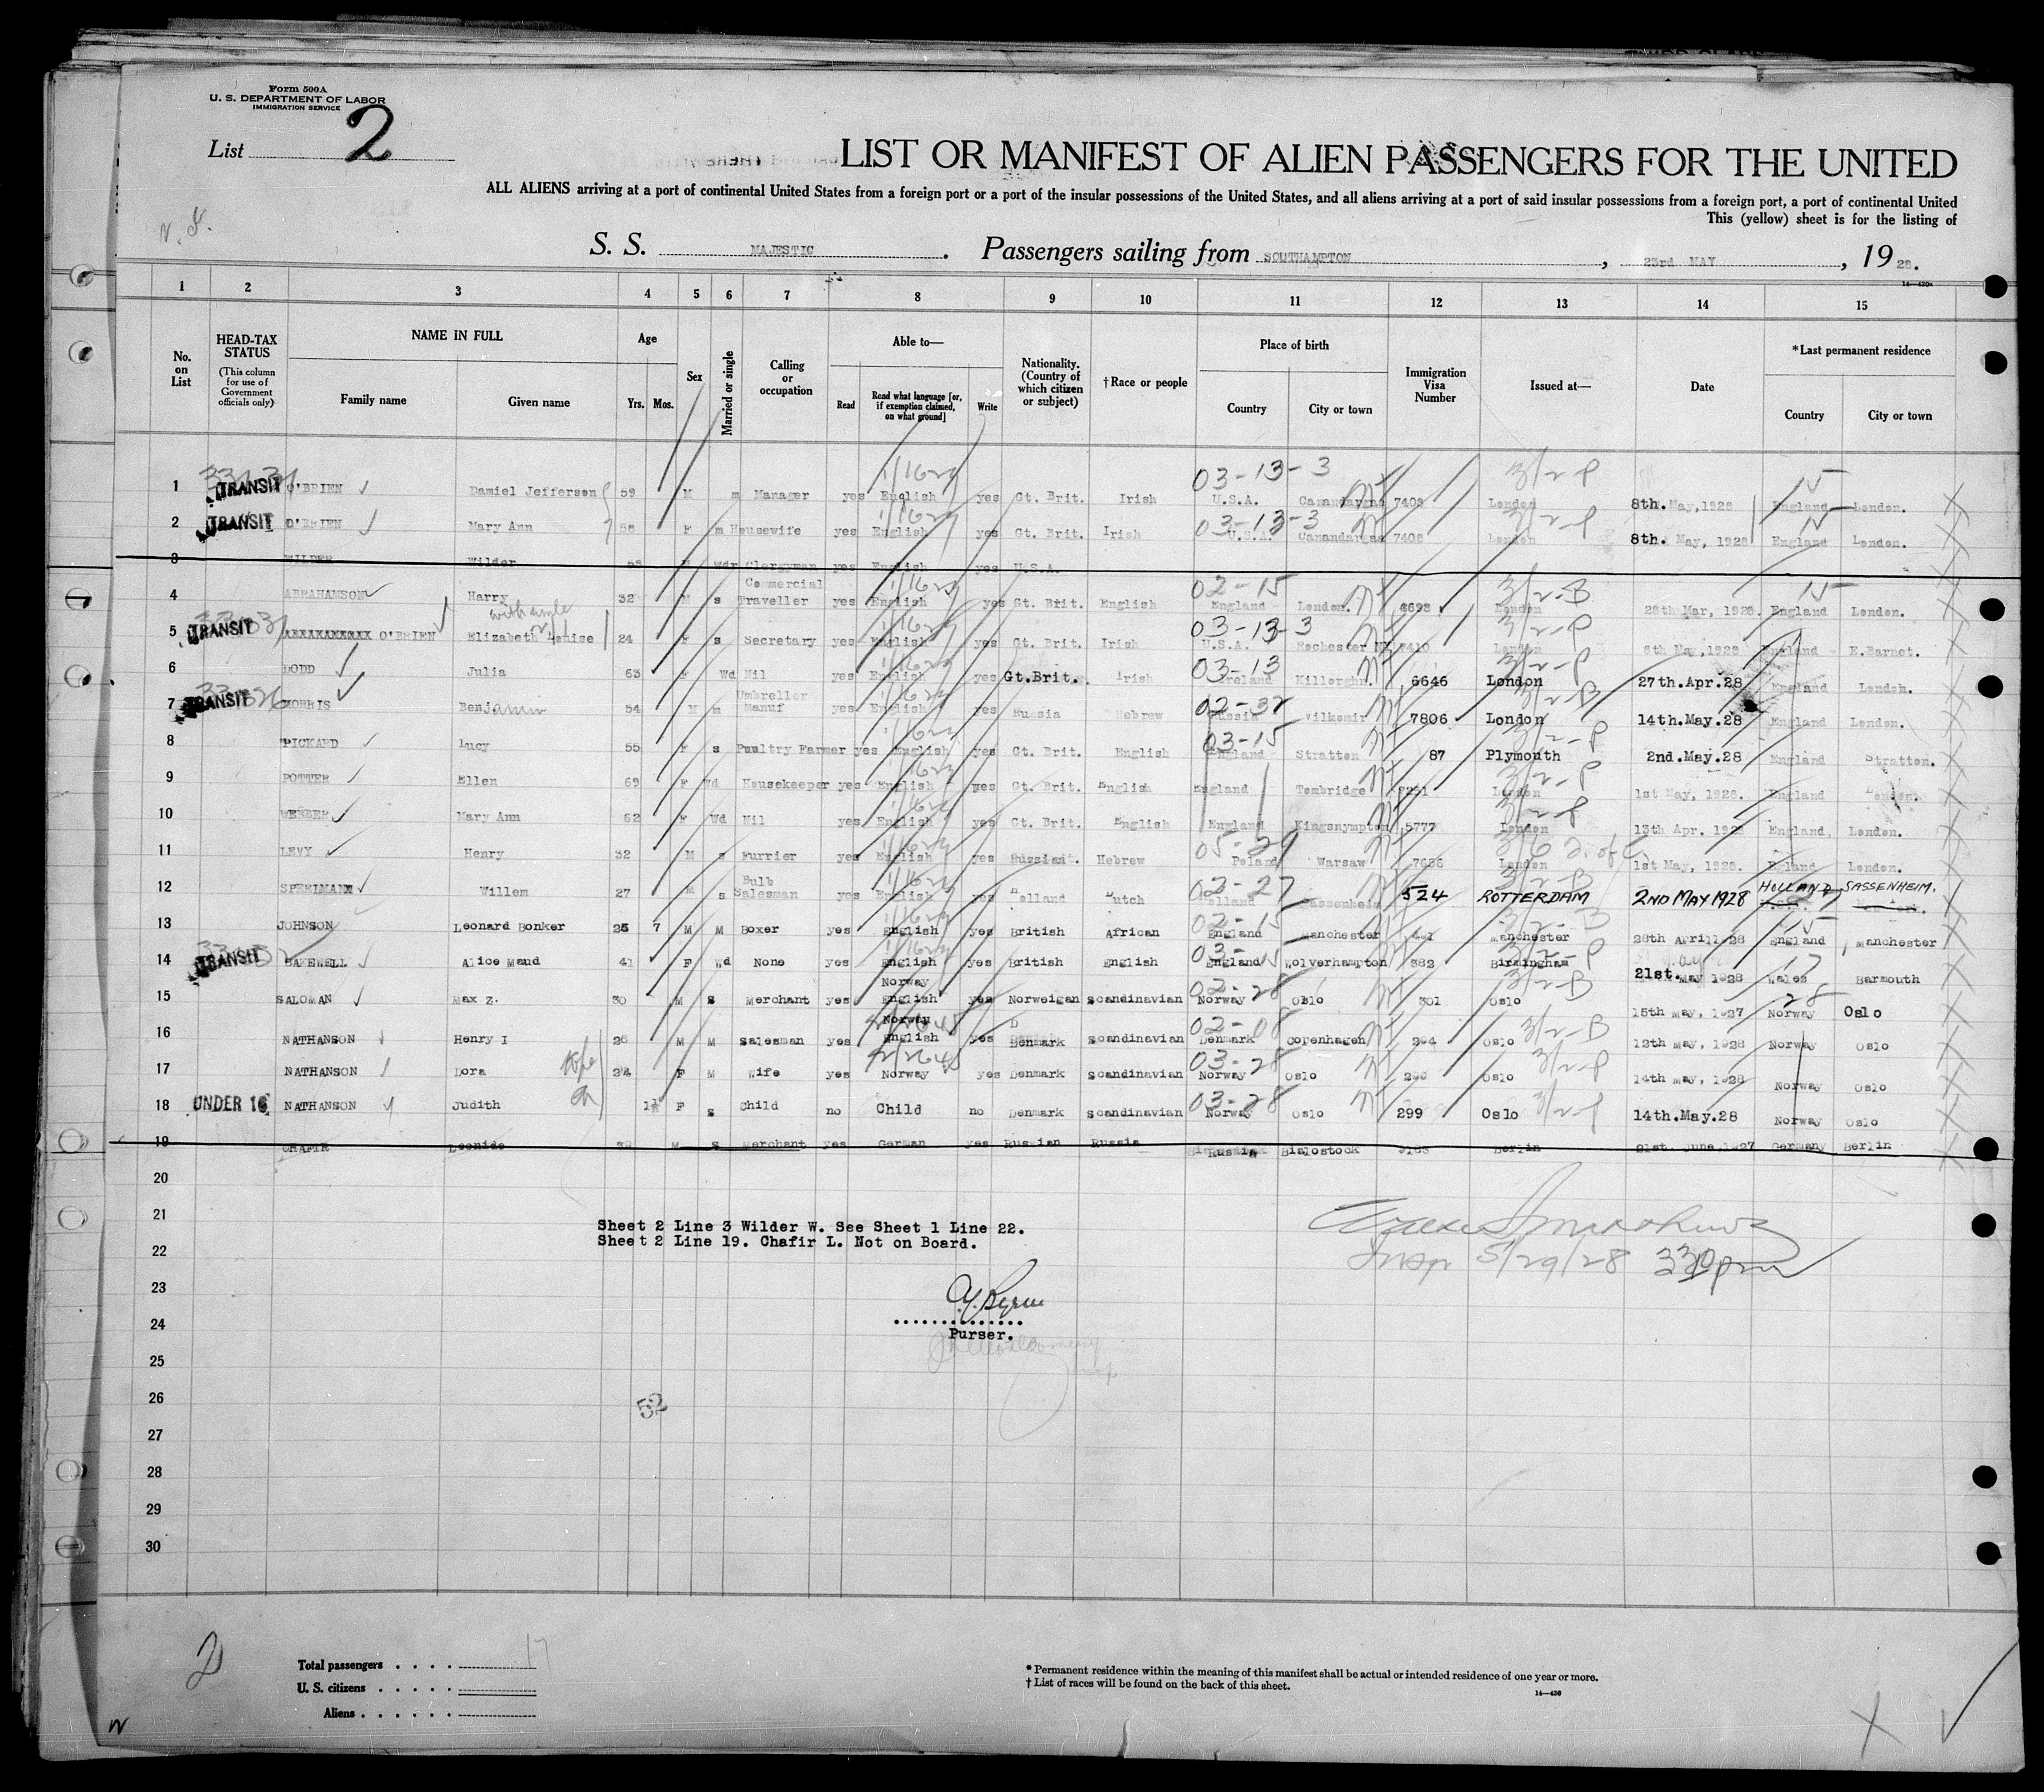 Form 500A
U. S. DEPARTMENT OF LABOR
IMMIGRATION SERVICE
List 2
LIST OR MANIFEST OF ALIEN PASSENGERS FOR THE UNITED
ALL ALIENS arriving at a port of continental United States from a foreign port or a port of the insular possessions of the United States, and all aliens arriving at a port of said insular possessions from a foreign port, a port of continental United
This (yellow) sheet is for the listing of
S. S. MAJESTIC. Passengers sailing from SOUTHAMPTON, 23rd MAY, 1928.
1 2 3 4 5 6 7 8 9 10 11 12 13 14 15
No. on List
HEAD-TAX STATUS (This column for use of Government officials only)
NAME IN FULL Family name Given name
Age Yrs. Mos.
Sex
Married or single
Calling or occupation
Able to— Read Read what language [or, if exemption claimed, on what ground] Write
Nationality. (Country of which citizen or subject)
†Race or people
Place of birth Country City or town
Immigration Visa Number
Issued at—
Date
*Last permanent residence Country City or town
1 TRANSIT O'BRIEN Damiel Jefferson 59 M m Manager yes English yes Gt. Brit. Irish 03-13-3 U.S.A. Canandargna 7408 London 8th. May, 1928 England London.
2 TRANSIT O'BRIEN Mary Ann 58 F m Housewife yes English yes Gt. Brit. Irish 03-13-3 U.S.A. Canandargna 7408 London 8th. May, 1928 England London.
3 WILDER Wilder 58 M Wdr Clergyman yes English yes U.S.A.
4 ABRAHAMSON Harry 32 M s Commercial Traveller yes English yes Gt. Brit. English 02-15 England London. 4693 London 28th Mar, 1928. England London.
5 TRANSIT O'BRIEN Elizabeth Louise 24 F s Secretary yes English yes Gt. Brit. Irish 03-13-3 U.S.A. Rochester NY 7410 London 8th May, 1928 England E.Barnet.
6 DODD Julia 63 F Wd Nil yes English yes Gt.Brit. Irish 03-13 Ireland 6646 London 27th.Apr.28 England London.
7 TRANSIT MORRIS Benjamin 54 M m Umbreller Manuf yes English yes Russia Hebrew 02-32 Russia Vilkomir 7806 London 14th.May.28 England London.
8 PICKARD Lucy 55 F s Poultry Farmer yes English yes Gt. Brit. English 03-15 England Stratton 87 Plymouth 2nd.May.28 England Stratton.
9 POTTER Ellen 69 F Wd Housekeeper yes English yes Gt. Brit. English England Tombridge London 1st May, 1928. England London.
10 WEBBER Mary Ann 62 F Wd Nil yes English yes Gt. Brit. English England Kingsnympton 5777 London 13th Apr. 1928 England, London.
11 LEVY Henry 32 M s Furrier yes English yes Russian. Hebrew 05-29 Poland Warsaw 7686 London 1st May, 1928. London.
12 SPEELMAN Willem 27 M s Bulb Salesman yes English yes Holland Dutch 02-27 Holland Sassenheim 524 ROTTERDAM 2ND MAY 1928 HOLLAND SASSENHEIM.
13 JOHNSON Leonard Bonker 25 7 M M Boxer yes English yes British African 02-15 England Manchester Manchester 28th Aprill 28 England Manchester
14 TRANSIT BAKEWELL Alice Maud 41 F Wd None yes English yes British English England Wolverhampton 382 Birmingham 21st. May 1928 Wales Barmouth
15 SALOMAN Max Z. 30 M S Merchant yes Norway English yes Norweigan Scandinavian 02-28 Norway Oslo 301 Oslo 15th May, 1927 Norway Oslo
16 NATHANSON Henry I 26 M M Salesman yes Norway English yes Denmark Scandinavian 02-08 Denmark Copenhagen 294 Oslo 12th May, 1928 Norway Oslo
17 NATHANSON Dora 24 F M Wife yes Norway yes Denmark Scandinavian 03-28 Norway Oslo Oslo 14th May, 1928 Norway Oslo
18 UNDER 16 NATHANSON Judith 1½ F S Child no Child no Denmark Scandinavian 03-28 Norway Oslo 299 Oslo 14th.May.28 Norway Oslo
19 CHAFIR Leonide 39 M S Merchant yes German yes Russian Russia Russia Bialostock Berlin 21st. June, 1927 Germany Berlin
20
21
Sheet 2 Line 3 Wilder W. See Sheet 1 Line 22.
Sheet 2 Line 19. Chafir L. Not on Board.
22
Insp 5/29/28 330pm
23
24
Purser.
25
26
52
27
28
29
30
2
Total passengers . . . . 17
U. S. citizens . . . . .
Aliens . . . . . .
* Permanent residence within the meaning of this manifest shall be actual or intended residence of one year or more.
† List of races will be found on the back of this sheet.
14—430